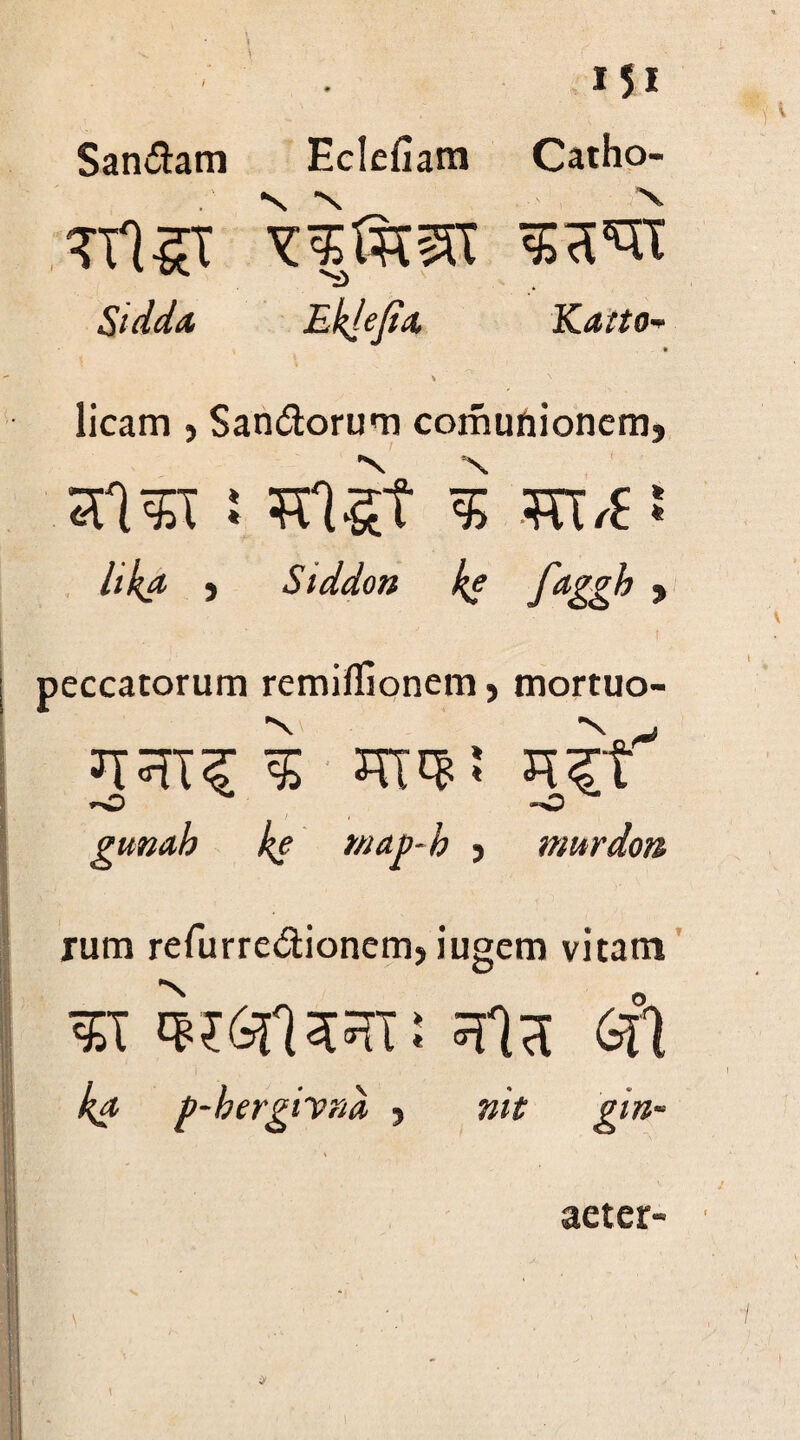 151
Sanctam Eclesiam Catho-
Sidda Eklesia Katto-
licam , Sanctorum comuñionem,
लीका : के
lika , Siddon ke saggh ,
peccatorum remissionem, mortuo-
गुनाह के माफ :
gunah ke map-h , murdon
rum resurrectionem, iugem vitam
का फेरजीवना : नीत जीं
ka p-hergivnà , nit gin-
aeter-